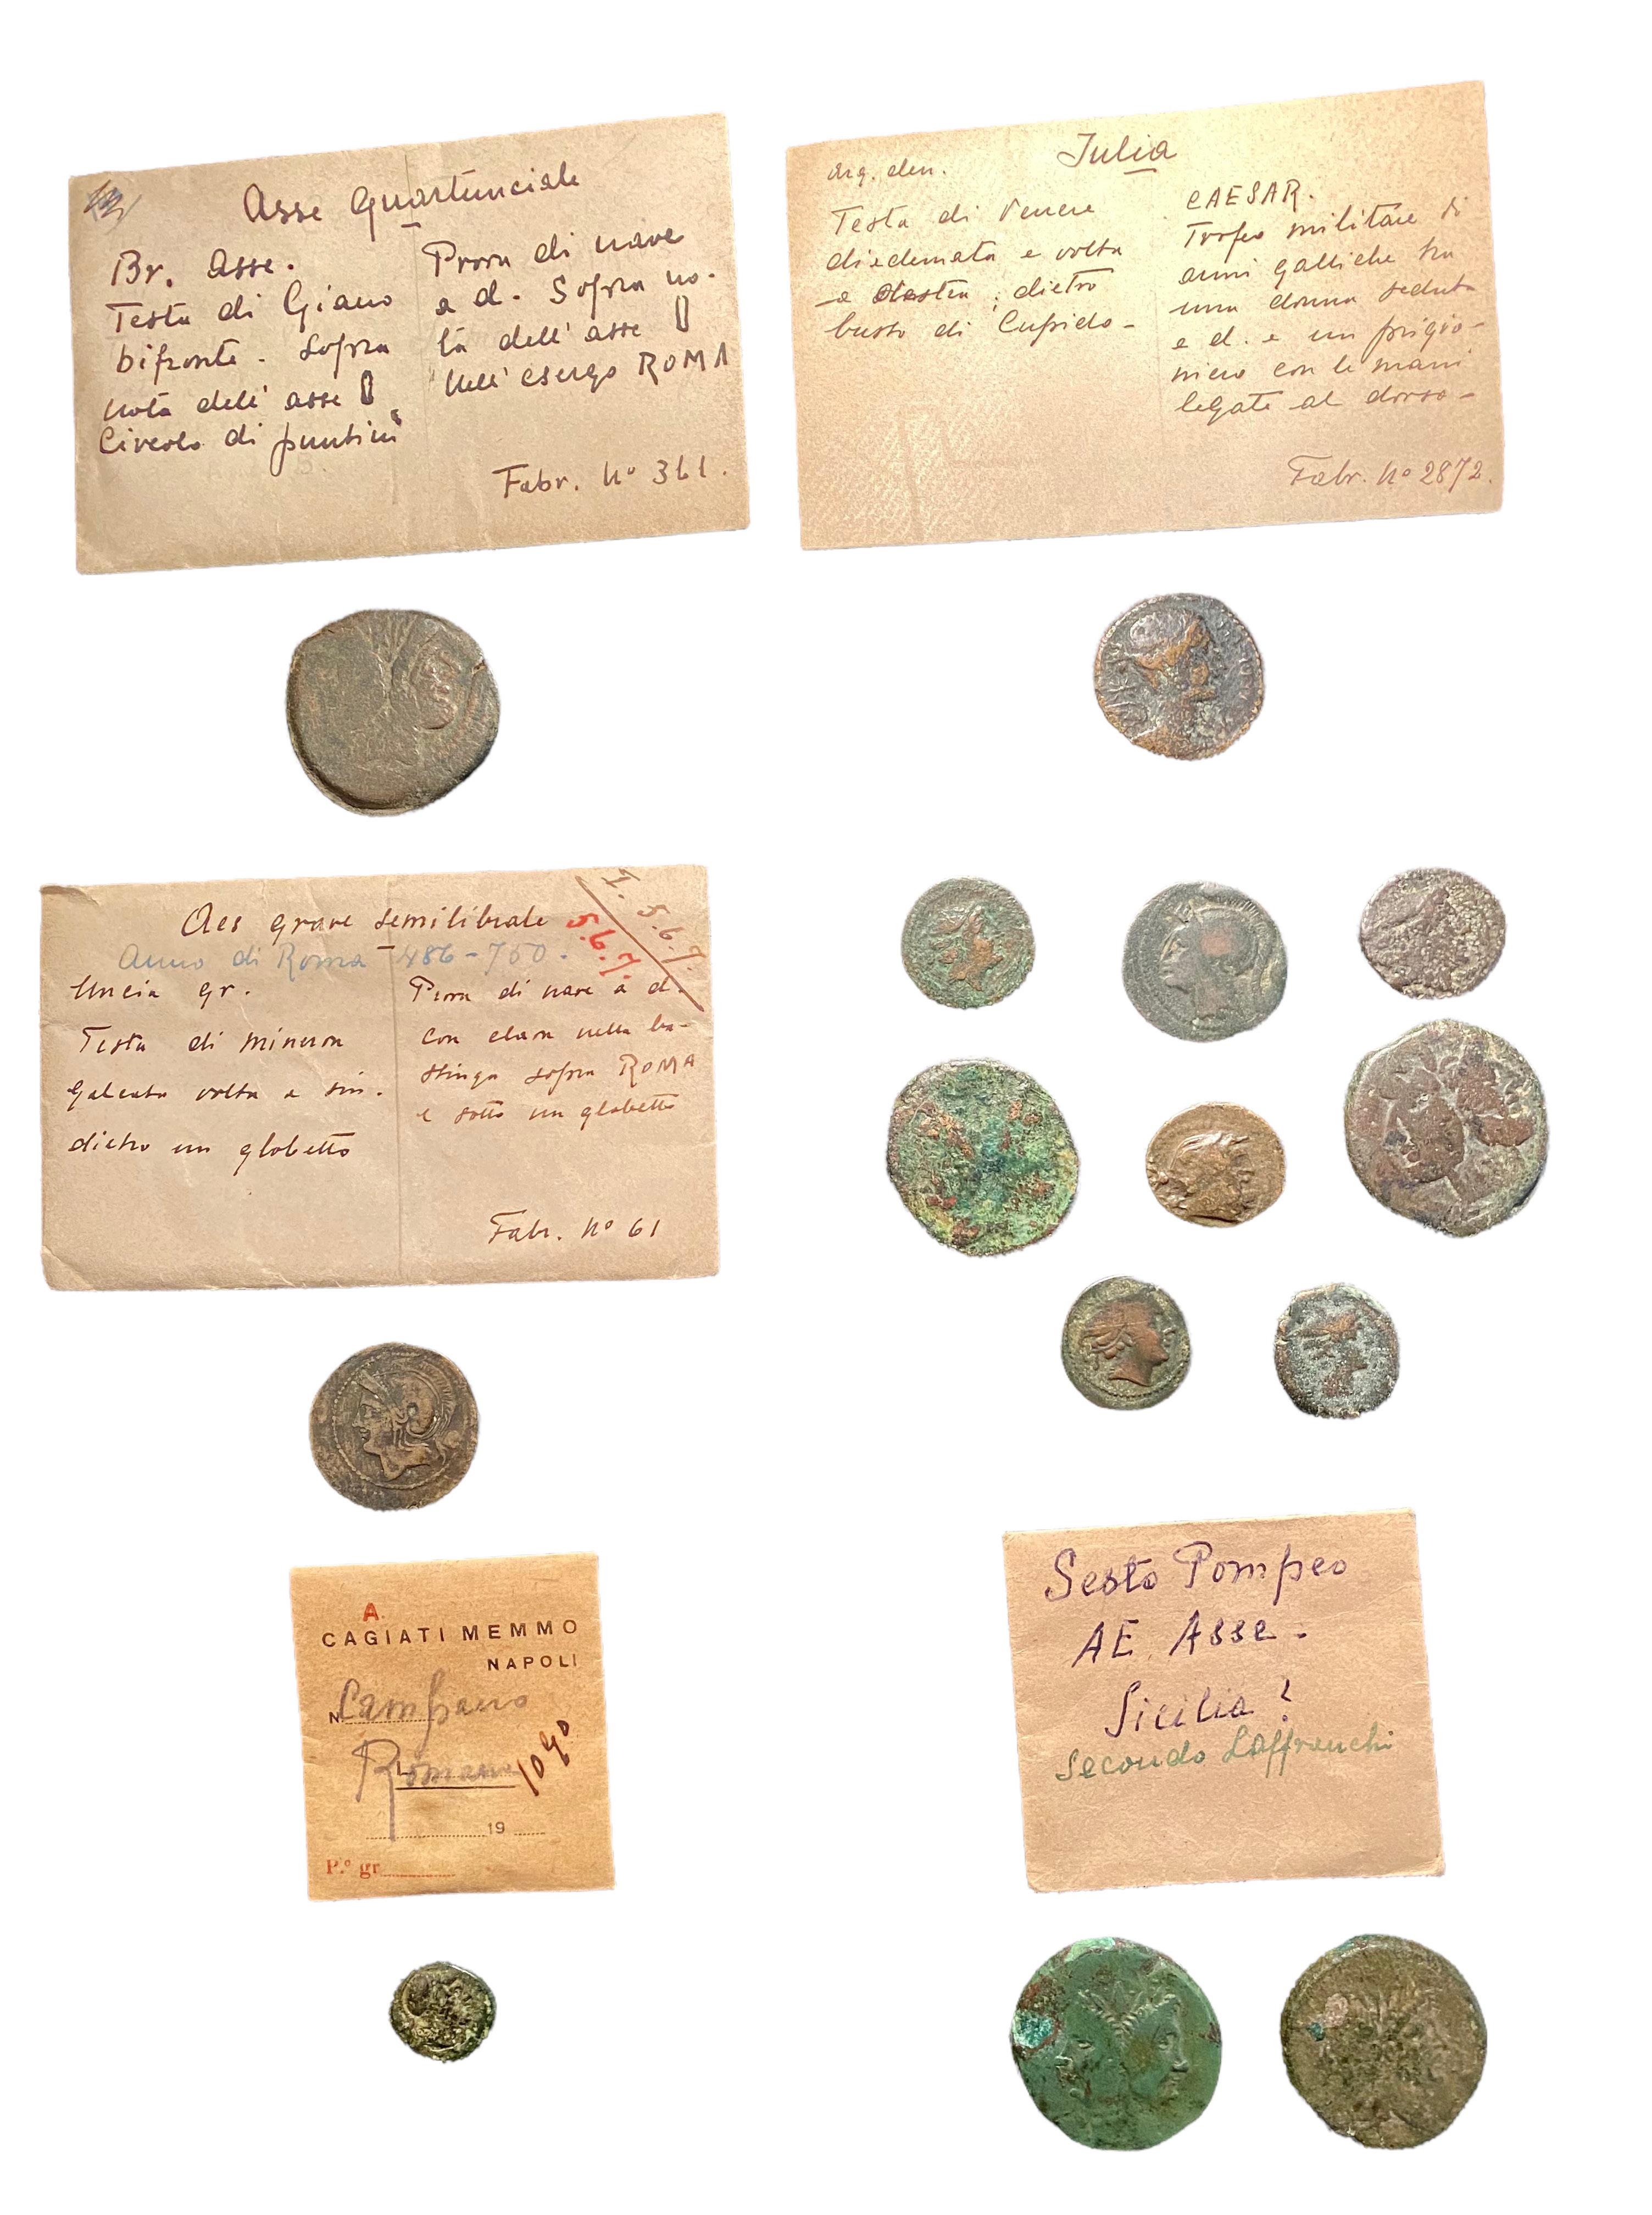 Asse Quartunciale
Br. Asse.
Testa di Giano
bifronte. Sopra
nota dell'asse
Circolo di puntini
Prora di nave
a d. Sopra no-
ta dell'asse
Nell'esergo ROMA
Fabr. Nº 361.
Iulia
Arg. den.
Testa di Venere
diademata e volta
a destra; dietro
busto di Cupido-
CAESAR.
Trofeo militare di
armi galliche tra
una donna seduta
a d. e un prigio-
niero con le mani
legate al dorso-
Fabr. Nº 2872.
Aes grave semilibrale
Anno di Roma 486-750.
I.
5.6.7.
5.6.7.
Uncia gr.
Testa di Minerva
galeata volta a sin.
dietro un globetto
Prora di nave a d.
con clava nella ba-
stinga sopra ROMA
e sotto un globetto
Fabr. Nº 61
A.
CAGIATI MEMMO
NAPOLI
N. Campano
Romano
19
P.º gr.
Sesto Pompeo
AE Asse-
Sicilia?
Secondo Laffranchi